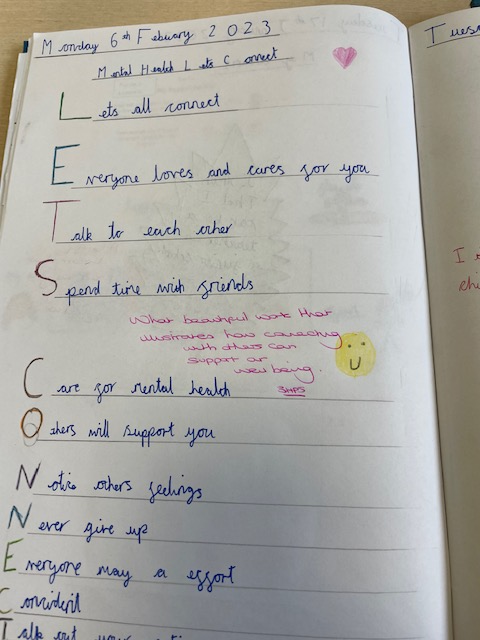 Monday 6th Febuary 2023
Mental Health Lets Connect
Lets all connect
Everyone loves and cares for you
Talk to each other
Spend time with friends
What beautiful work that
illustrates how connecting
with others can
support ar
well being.
Care for mental health
SHPS
Others will support you
Notice others feelings
Never give up
Everyone may a effort
Talk out your
Tues
I
chi